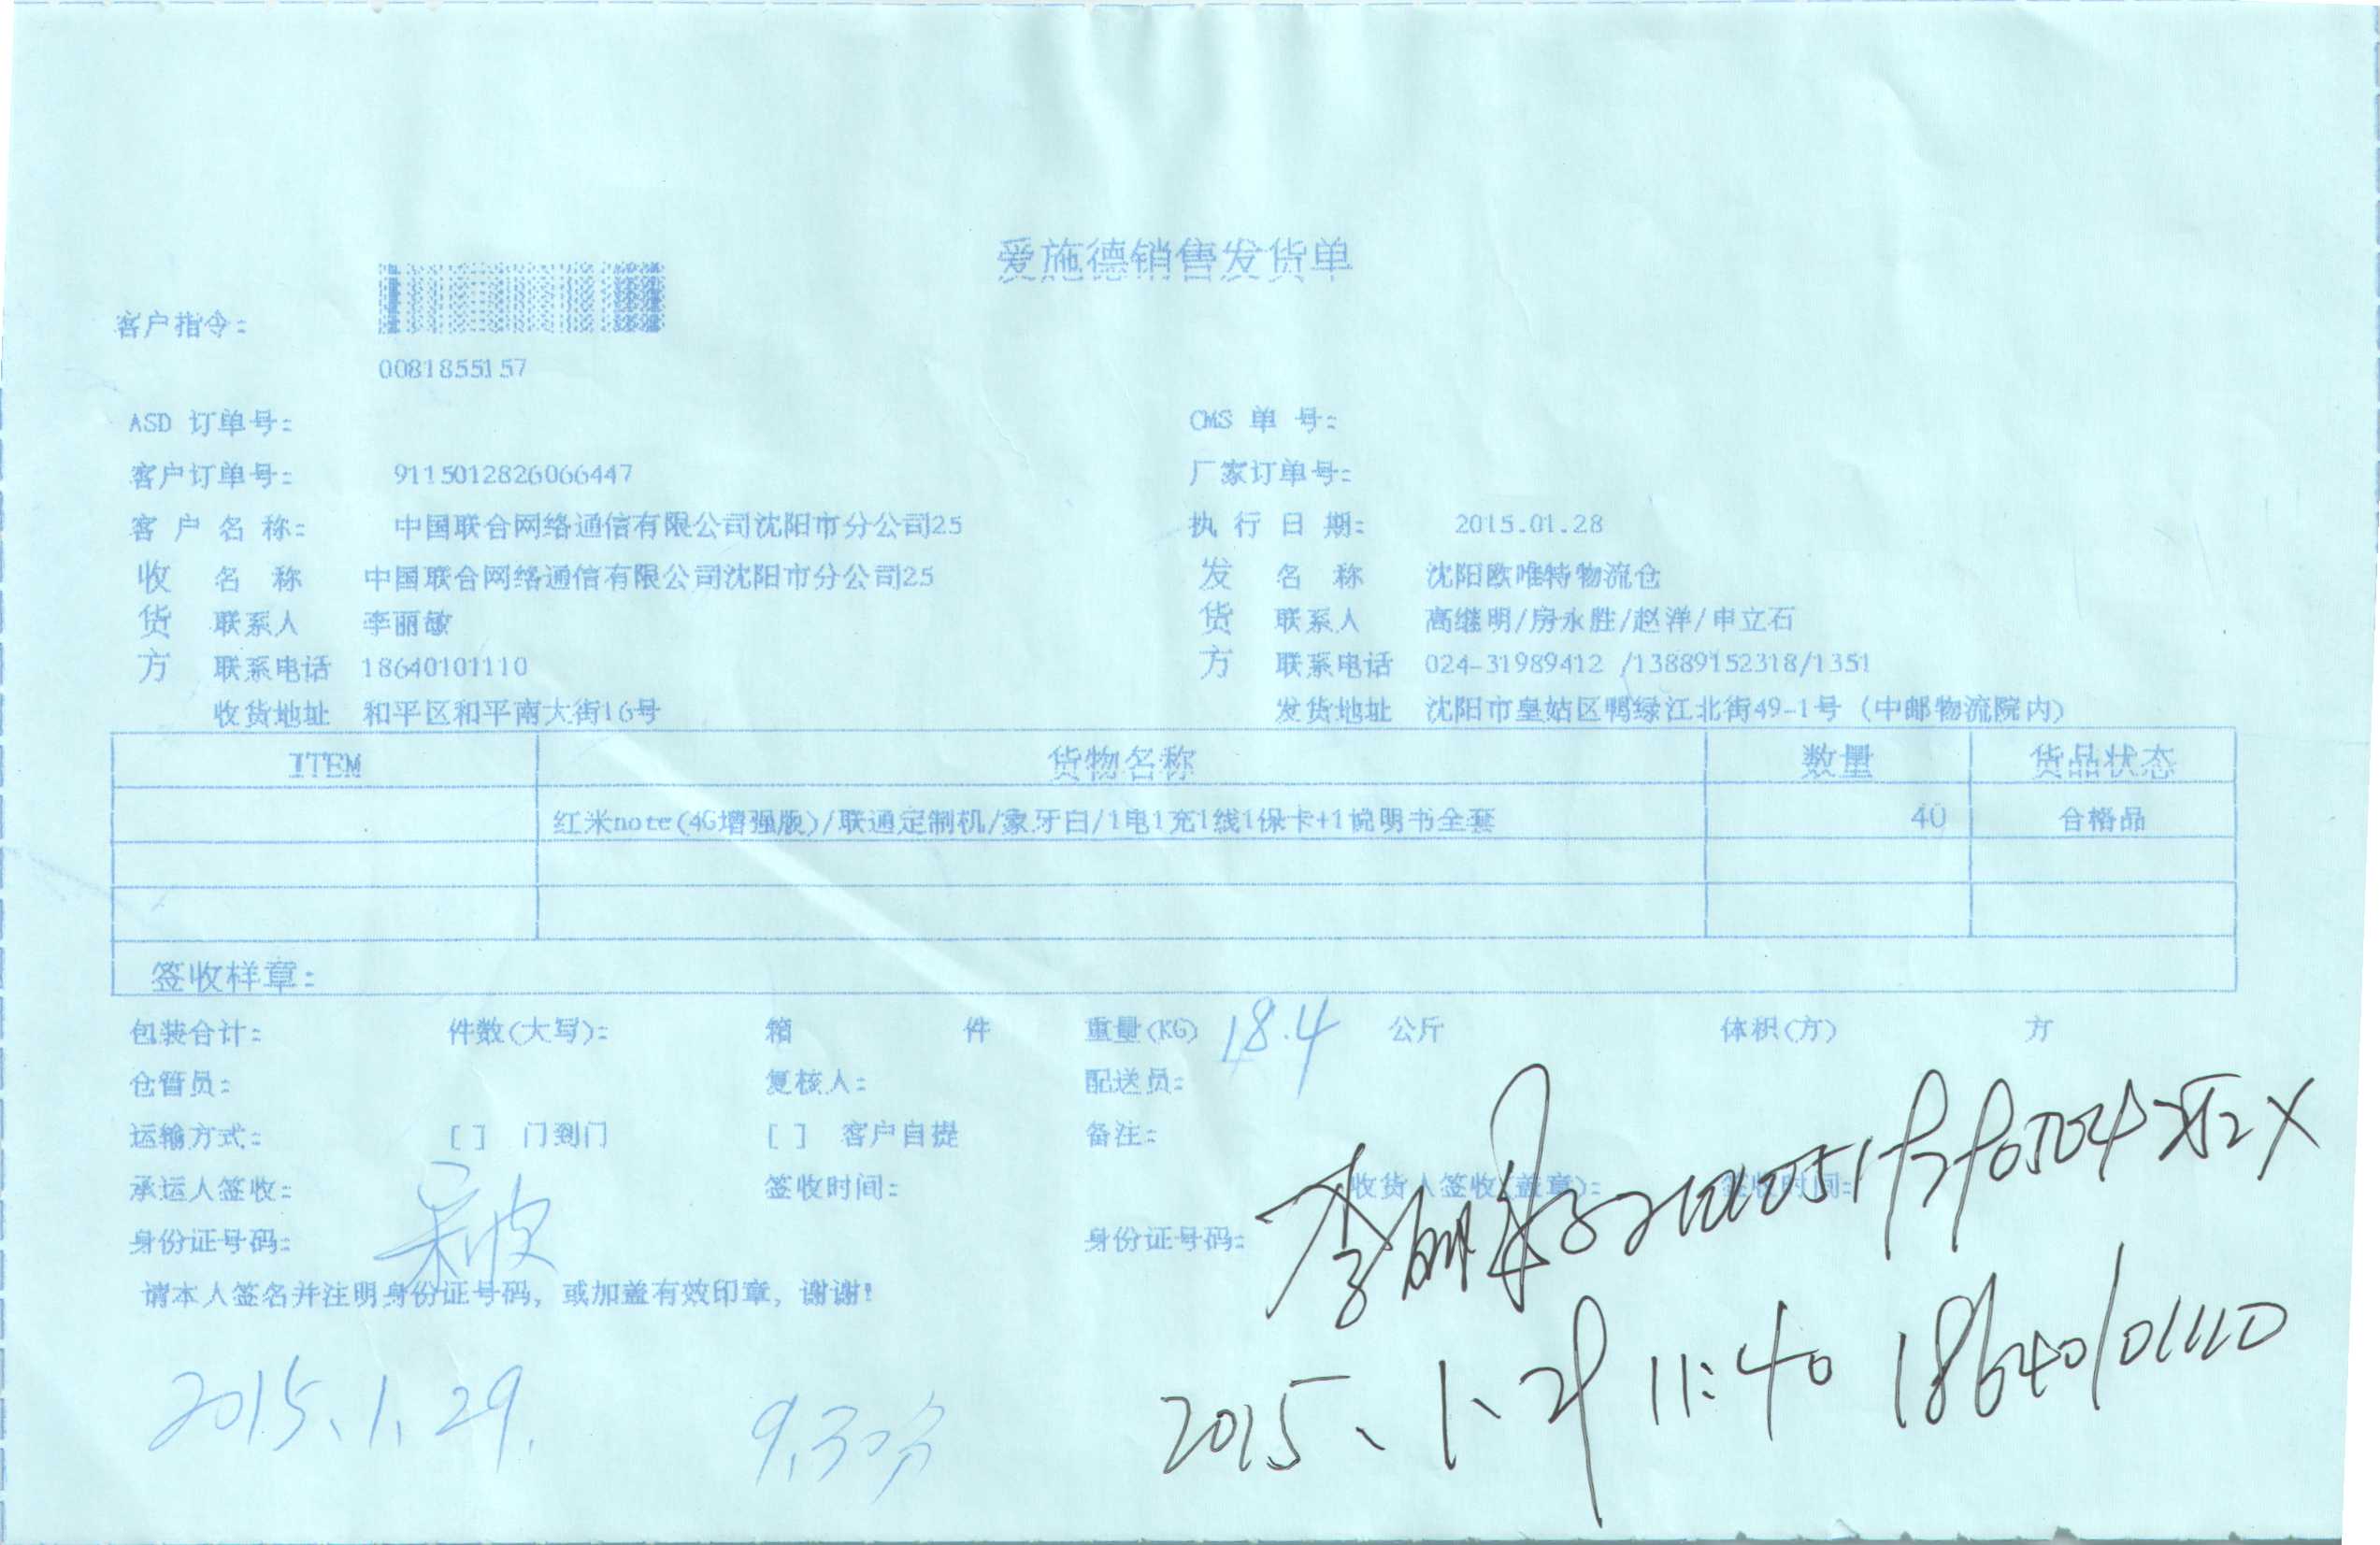 爱施德销售发货单
客户指令:
0081855157
ASD 订单号: CMS 单 号:
客户订单号: 9115012826066447 厂家订单号:
客 户 名 称: 中国联合网络通信有限公司沈阳市分公司25 执 行 日 期: 2015.01.28
收 名 称 中国联合网络通信有限公司沈阳市分公司25 发 名 称 沈阳欧唯特物流仓
货 联系人 李丽敏 货 联系人 高继明/房永胜/赵洋/申立石
方 联系电话 18640101110 方 联系电话 024-31989412 /13889152318/1351
收货地址 和平区和平南大街16号 发货地址 沈阳市皇姑区鸭绿江北街49-1号 (中邮物流院内)
ITEM 货物名称 数量 货品状态
红米note(4G增强版)/联通定制机/象牙白/1电1充1线1保卡+1说明书全套 40 合格品
签收样章:
包装合计: 件数(大写): 箱 件 重量(KG) 18.4 公斤 体积(方) 方
仓管员: 复核人: 配送员:
运输方式: [ ] 门到门 [ ] 客户自提 备注:
承运人签收: 签收时间: 收货人签收(盖章): 签收时间:
身份证号码: 身份证号码: 李丽敏
请本人签名并注明身份证号码, 或加盖有效印章, 谢谢!
2015、1、29. 9.30分 2015、1、29 11:40 18640101110